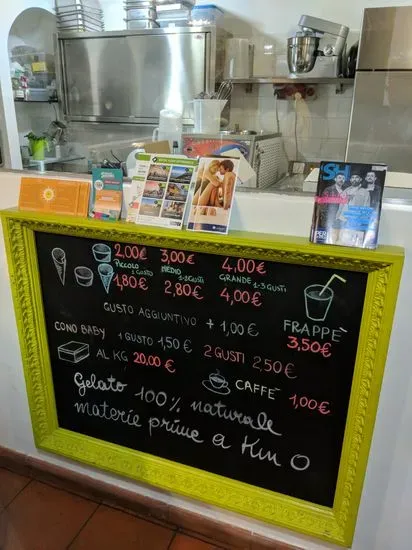 2,00€ 3,00€ 4,00€
PICCOLO 1 GUSTO MEDIO 1-2 GUSTI GRANDE 1-3 GUSTI
1,80€ 2,80€ 4,00€
GUSTO AGGIUNTIVO + 1,00€
FRAPPÈ
3,50€
CONO BABY 1 GUSTO 1,50€ 2 GUSTI 2,50€
AL KG 20,00€
CAFFÈ 1,00€
Gelato 100% naturale
materie prime a Km 0